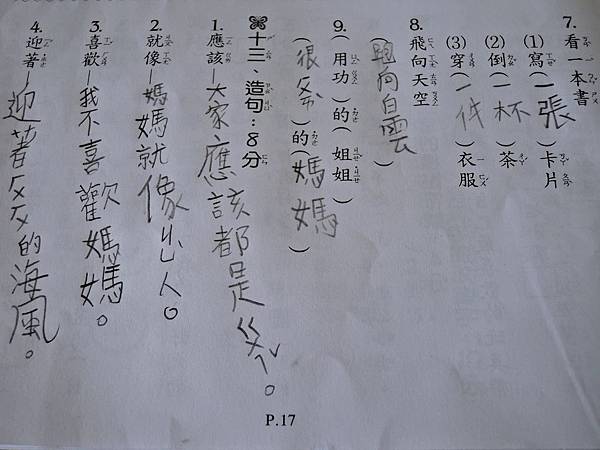 7.看一本書
(1)寫(一張)卡片
(2)倒(一杯)茶
(3)穿(一件)衣服
8.飛向天空
(跑向白雲)
9.(用功)的(姐姐)
(很)的(媽媽)
十三、造句:8分
1.應該—大家應該都是ㄍㄨㄟˇ。
2.就像—媽媽就像人。
3.喜歡—我不喜歡媽媽。
4.迎著—迎著的海風。
P.17